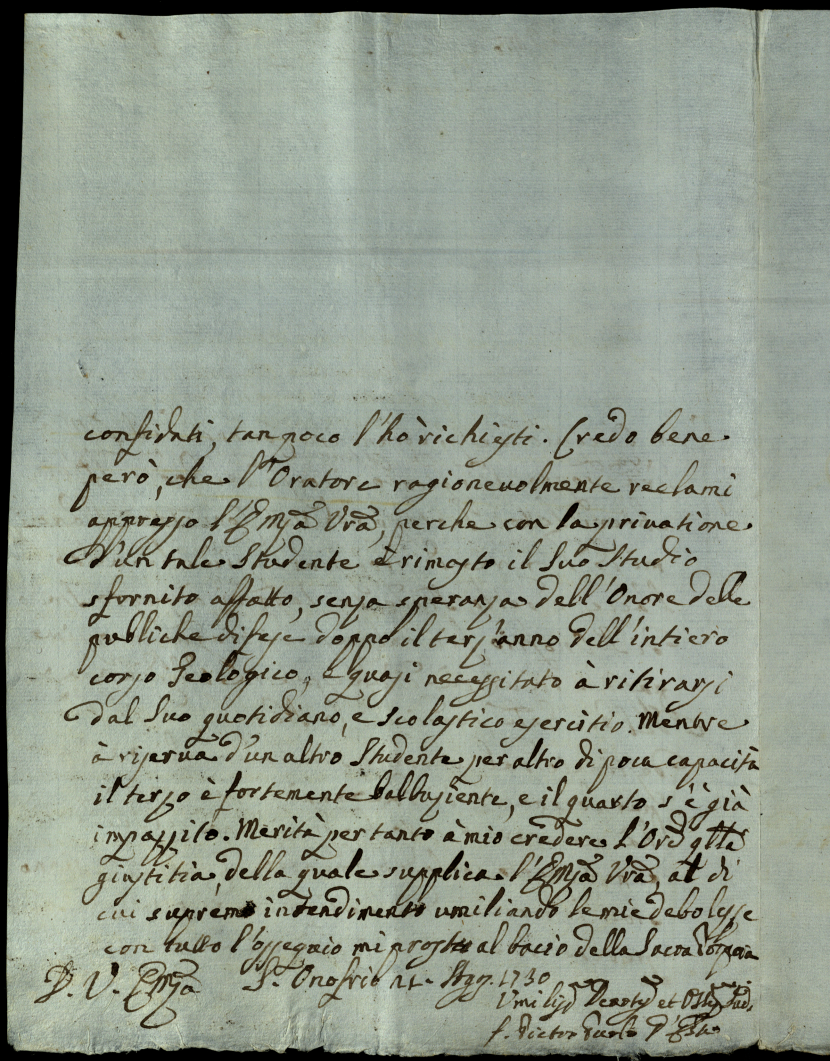 confidati, tampoco l'hò richiesti. Credo bene
però, che l'Oratore ragionevolmente reclami
appresso l'Em̃a Vrã, perche con la privatione
d'un tale Studente è rimasto il Suo Studio
sfornito affatto, senza speranza dell'Onore delle
publiche difese doppo il terz'anno dell'intiero
corso Teologico, e quasi necessitato à ritirarsi
dal Suo quotidiano, e scolastico esercitio. Mentre
à riserva d'un altro Studente per altro di poca capacità
il terzo è fortemente balbuziente, e il quarto s'è già
impazzito. Merità per tanto à mio credere l'Orẽ
giustitia, della quale supplica l'Em̃a Vrã, al di
cui supremo intendimento umiliando le mie debolezze
con tutto l'ossequio mi prostro al bacio della Sacra Porpora
D. V. Em̃a S. Onofrio 21. 1730
Umiliss Devot et
f.